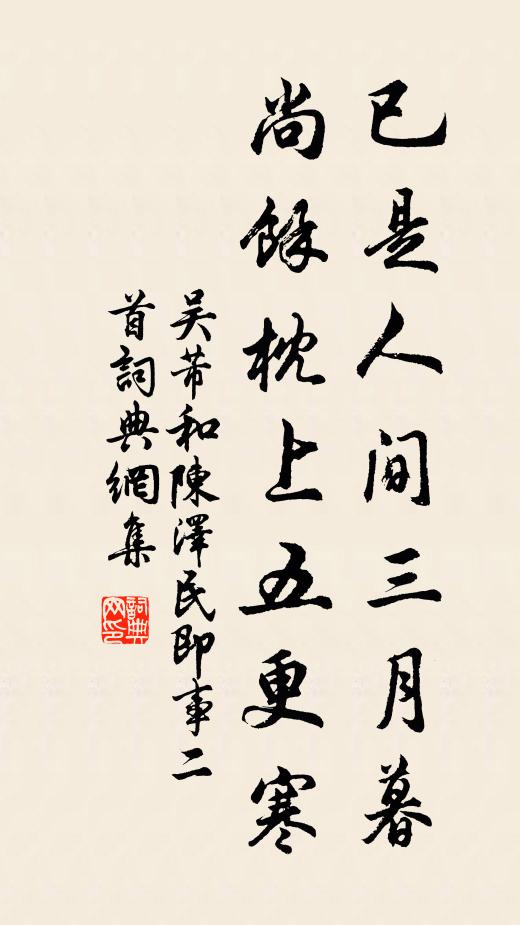 已是人間三月暮
尚餘枕上五更寒
吴芾和陳澤民即事二
首詞典網集
詞典
网印